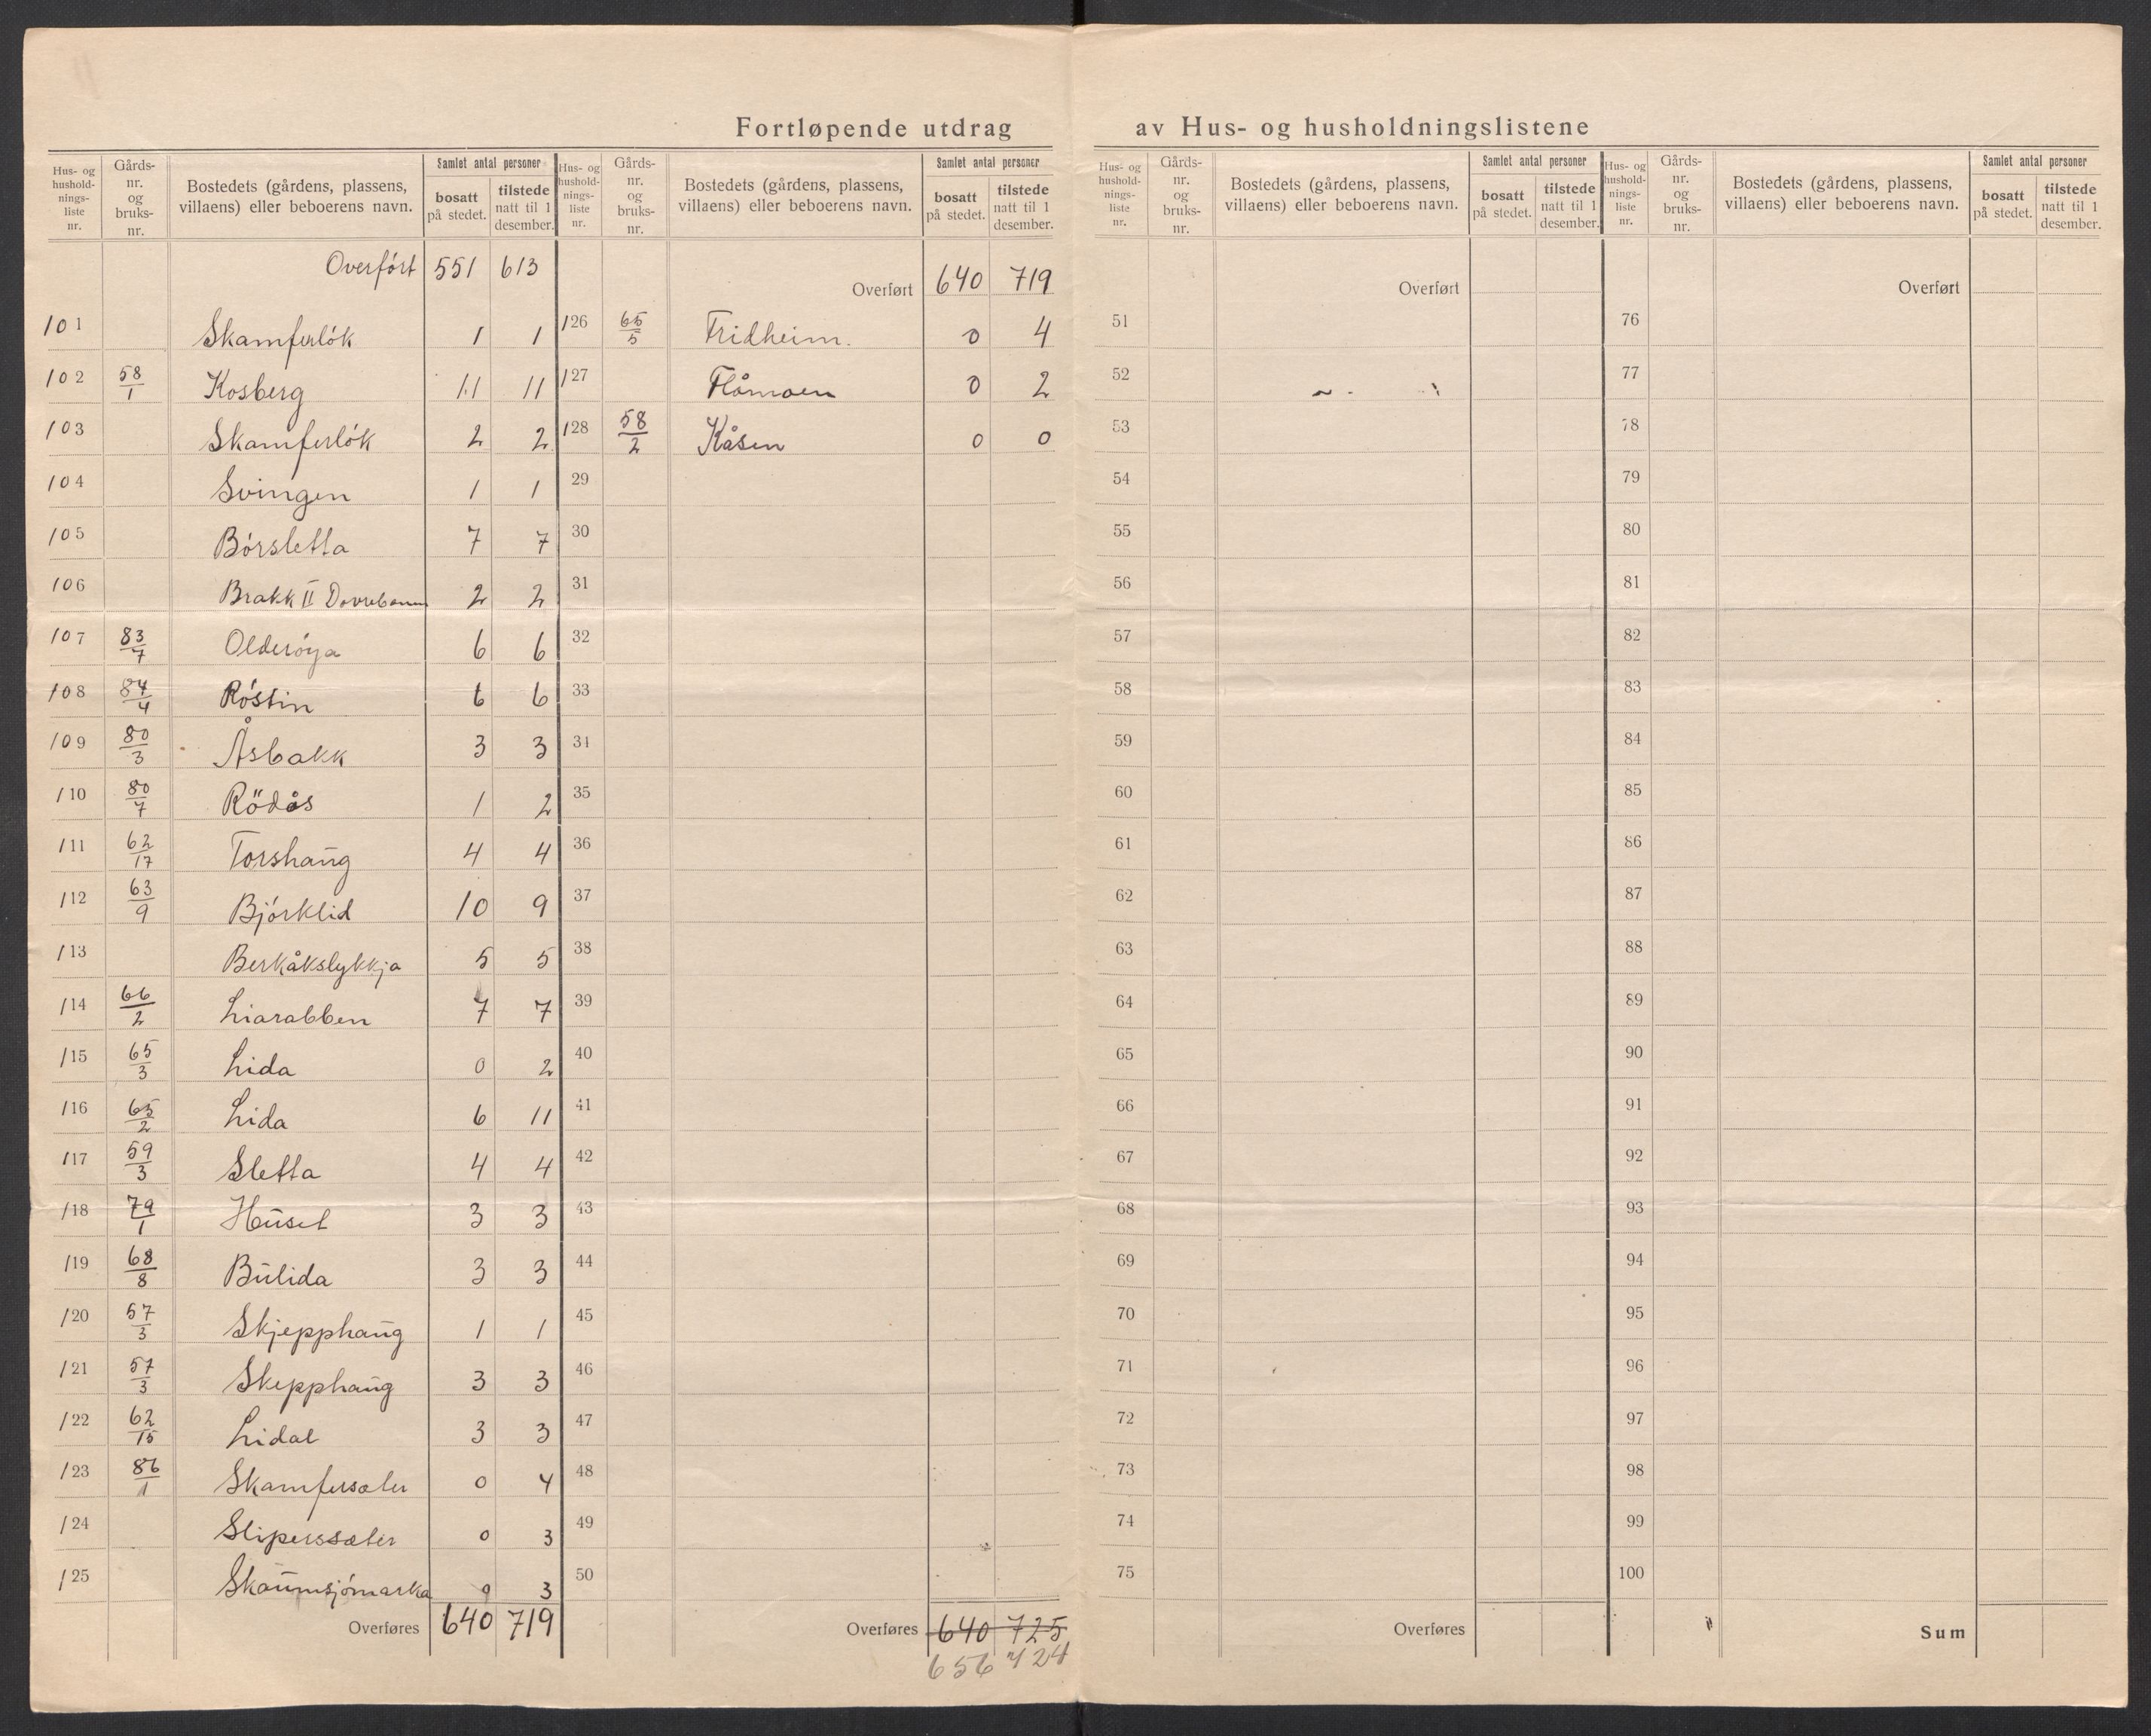 Fortløpende utdrag av Hus- og husholdningslistene
Hus- og husholdnings-liste nr. | Gårds-nr. og bruks-nr. | Bostedets (gårdens, plassens, villaens) eller beboerens navn. | Samlet antal personer: bosatt på stedet. | tilstede natt til 1 desember.
Overført 551 613
101 Skamferlók 1 1
102 58/1 Kosberg 11 11
103 Skamferlók 2 2
104 Svingen 1 1
105 Bórsletta 7 7
106 Brakk II Dovrebanen 2 2
107 83/7 Olderóya 6 6
108 84/4 Róstin 6 6
109 80/3 Åsbakk 3 3
110 80/7 Rödås 1 2
111 62/17 Torshaug 4 4
112 63/9 Bjórklid 10 9
113 Berkåkslykkja 5 5
114 66/2 Liarabben 7 7
115 65/3 Lida 0 2
116 65/2 Lida 6 11
117 59/3 Sletta 4 4
118 79/1 Huset 3 3
119 68/8 Bulida 3 3
120 57/3 Skjepphaug 1 1
121 57/3 Skepphaug 3 3
122 62/15 Lidal 3 3
123 86/1 Skamfersæter 0 4
124 Sliperssæter 0 3
125 Skaumsjómarka 0 3
Overføres 640 719
Hus- og husholdnings-liste nr. | Gårds-nr. og bruks-nr. | Bostedets (gårdens, plassens, villaens) eller beboerens navn. | Samlet antal personer: bosatt på stedet. | tilstede natt til 1 desember.
Overført 640 719
126 65/5 Fridheim. 0 4
127 Flåmoen 0 2
128 58/2 Kåsen 0 0
29
30
31
32
33
34
35
36
37
38
39
40
41
42
43
44
45
46
47
48
49
50
Overføres 640 725
656 724
Hus- og husholdnings-liste nr. | Gårds-nr. og bruks-nr. | Bostedets (gårdens, plassens, villaens) eller beboerens navn. | Samlet antal personer: bosatt på stedet. | tilstede natt til 1 desember.
Overført
51
52
53
54
55
56
57
58
59
60
61
62
63
64
65
66
67
68
69
70
71
72
73
74
75
Overføres
Hus- og husholdnings-liste nr. | Gårds-nr. og bruks-nr. | Bostedets (gårdens, plassens, villaens) eller beboerens navn. | Samlet antal personer: bosatt på stedet. | tilstede natt til 1 desember.
Overført
76
77
78
79
80
81
82
83
84
85
86
87
88
89
90
91
92
93
94
95
96
97
98
99
100
Sum